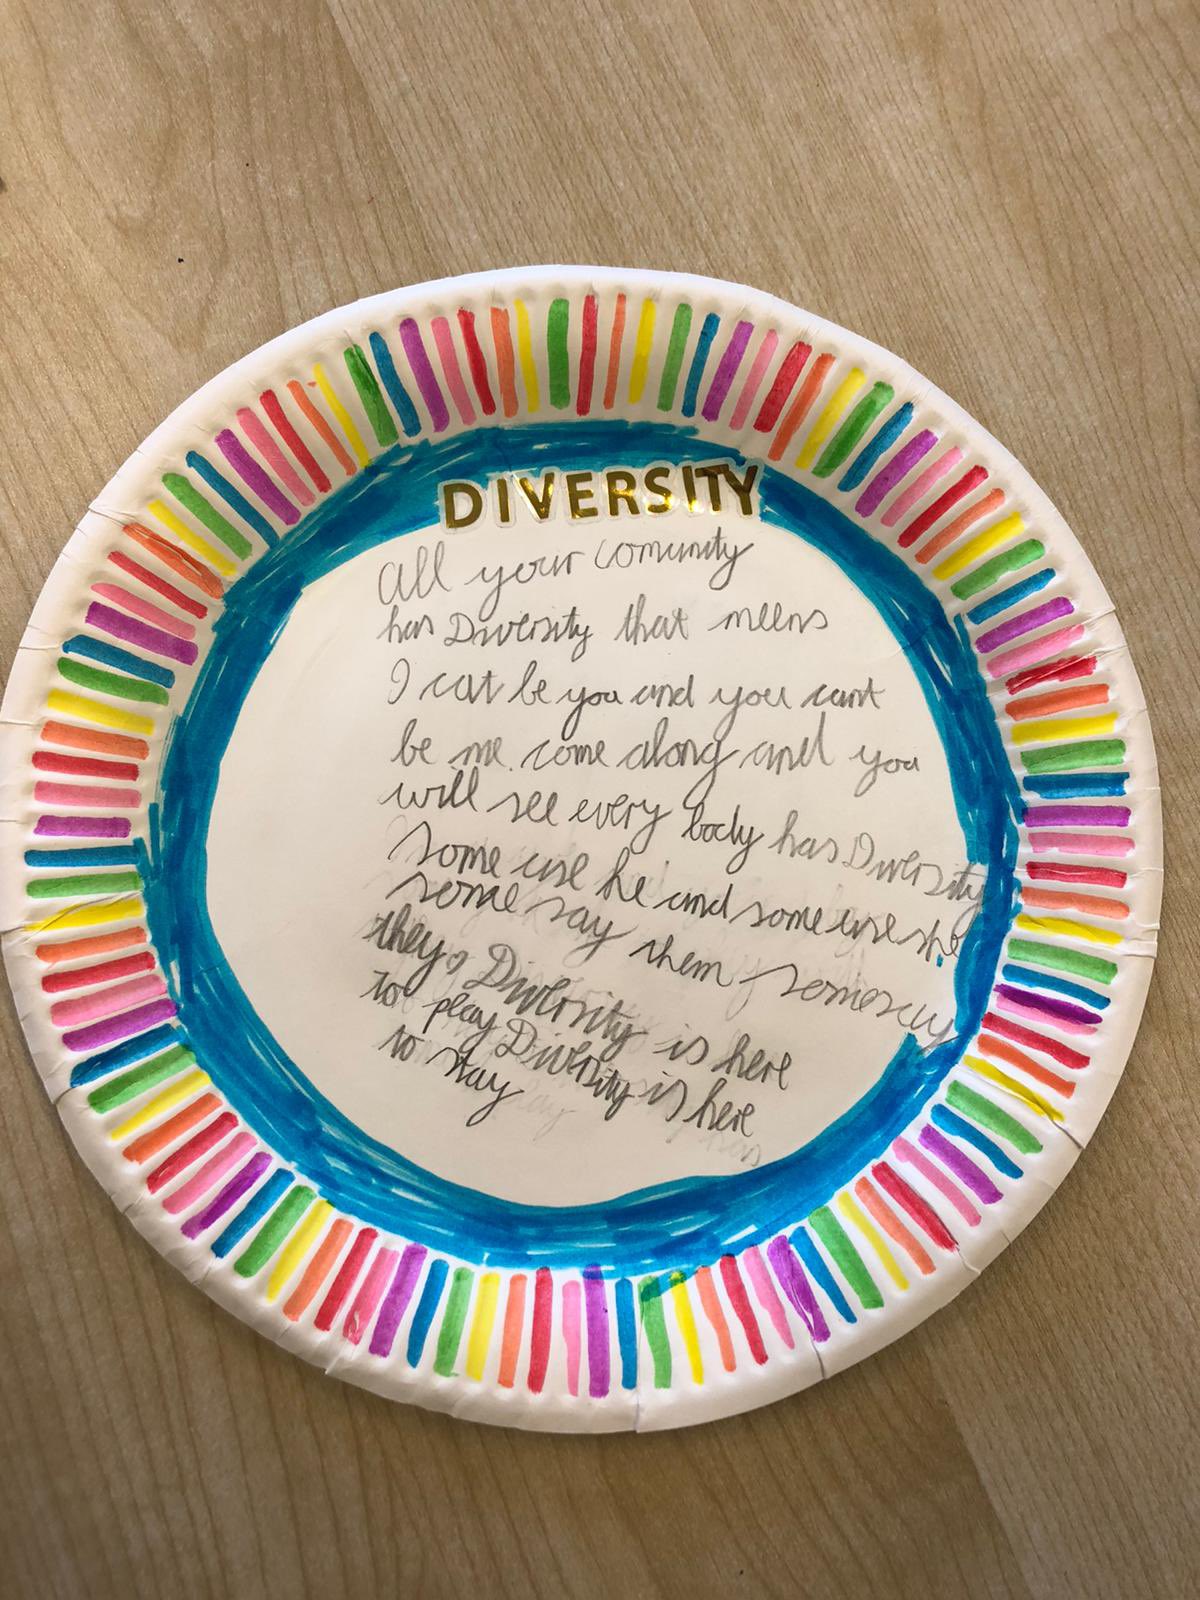 DIVERSITY
all your comunity
has Diversity that meens
I cat be you and you cant
be me. come along and you
will see every body has Diversity
some use he and some use she
some say them some say
they. Diversity is here
to play Diversity is here
to stay